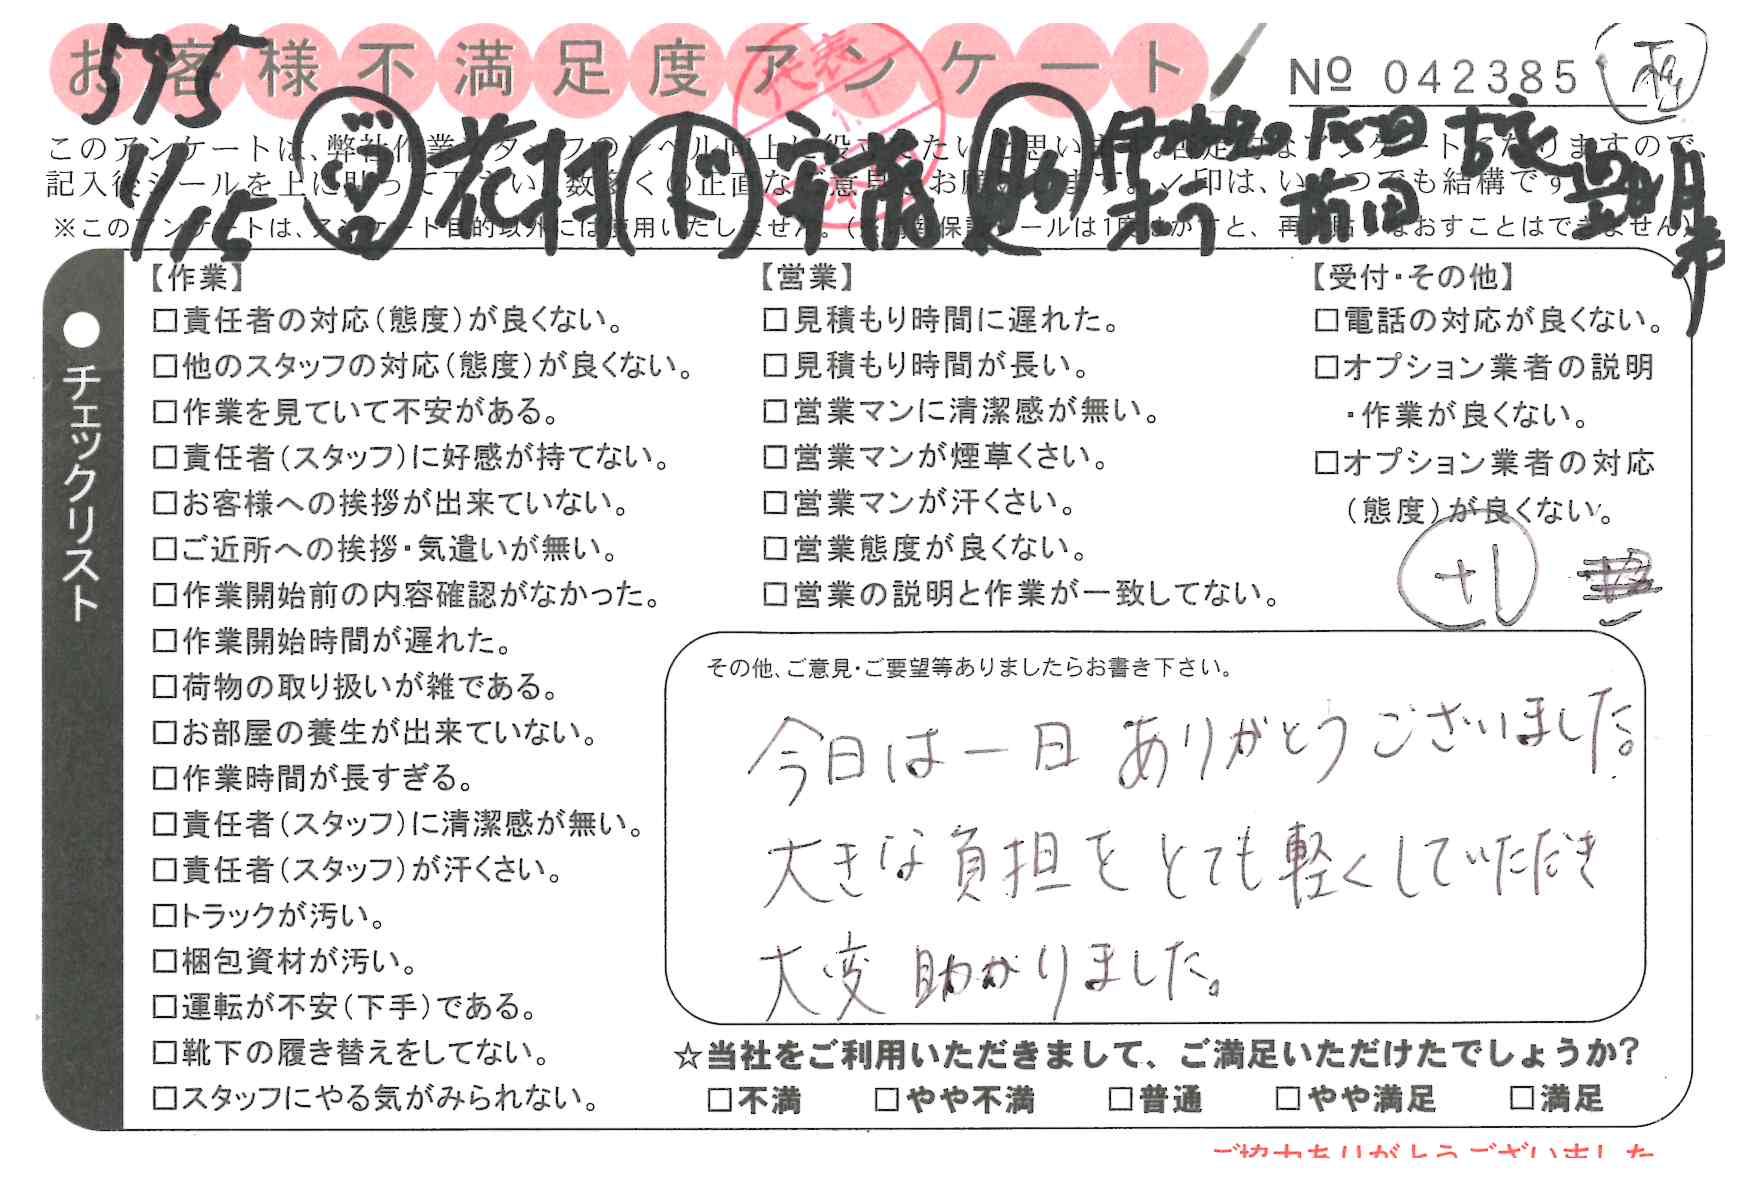 お客様不満足度アンケート
Nº 042385
575
1/15
花村
ド
助
前田
このアンケートは、弊社作業スタッフのレベル向上に役
記入後シールを上に貼って下さい。数多くの正直なご意見をお願いします。✓印は、いくつでも結構です
※このアンケートは、アンケート目的以外には使用いたしません。
チェックリスト
【作業】
□責任者の対応(態度)が良くない。
□他のスタッフの対応(態度)が良くない。
□作業を見ていて不安がある。
□責任者(スタッフ)に好感が持てない。
□お客様への挨拶が出来ていない。
□ご近所への挨拶・気遣いが無い。
□作業開始前の内容確認がなかった。
□作業開始時間が遅れた。
□荷物の取り扱いが雑である。
□お部屋の養生が出来ていない。
□作業時間が長すぎる。
□責任者(スタッフ)に清潔感が無い。
□責任者(スタッフ)が汗くさい。
□トラックが汚い。
□梱包資材が汚い。
□運転が不安(下手)である。
□靴下の履き替えをしてない。
□スタッフにやる気がみられない。
【営業】
□見積もり時間に遅れた。
□見積もり時間が長い。
□営業マンに清潔感が無い。
□営業マンが煙草くさい。
□営業マンが汗くさい。
□営業態度が良くない。
□営業の説明と作業が一致してない。
【受付・その他】
□電話の対応が良くない。
□オプション業者の説明
・作業が良くない。
□オプション業者の対応
(態度)が良くない。
その他、ご意見・ご要望等ありましたらお書き下さい。
今日は一日 ありがとうございました。
大きな負担を とても軽くしていただき
大変 助かりました。
☆当社をご利用いただきまして、ご満足いただけたでしょうか?
□不満 □やや不満 □普通 □やや満足 □満足
ご協力ありがとうございました